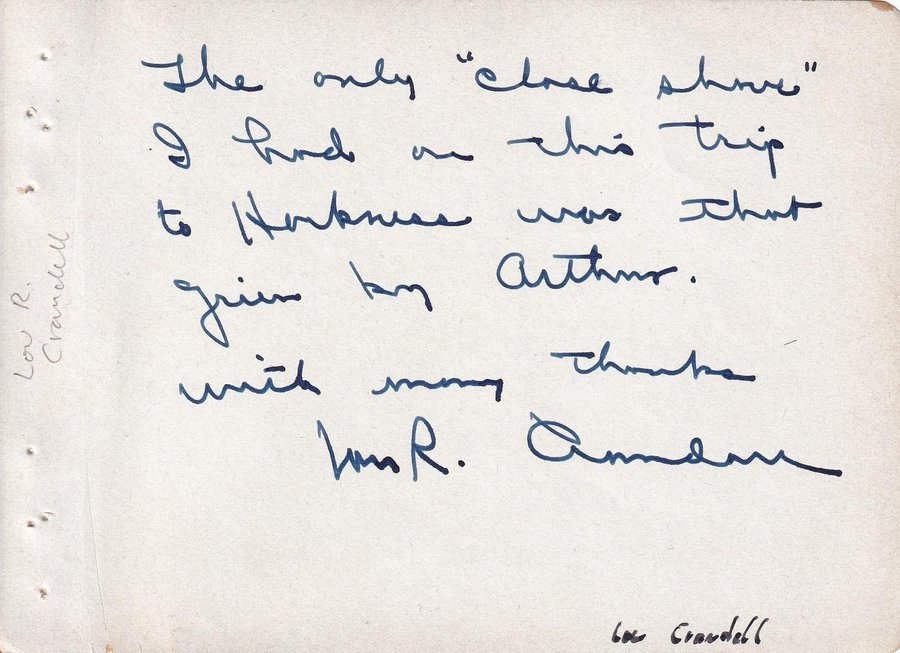 The only "close shave"
I had on this trip
to Harkness was that
given by Arthur.
with many thanks
Lou R. Crandall
Lou R.
Crandell
Lou Crandell